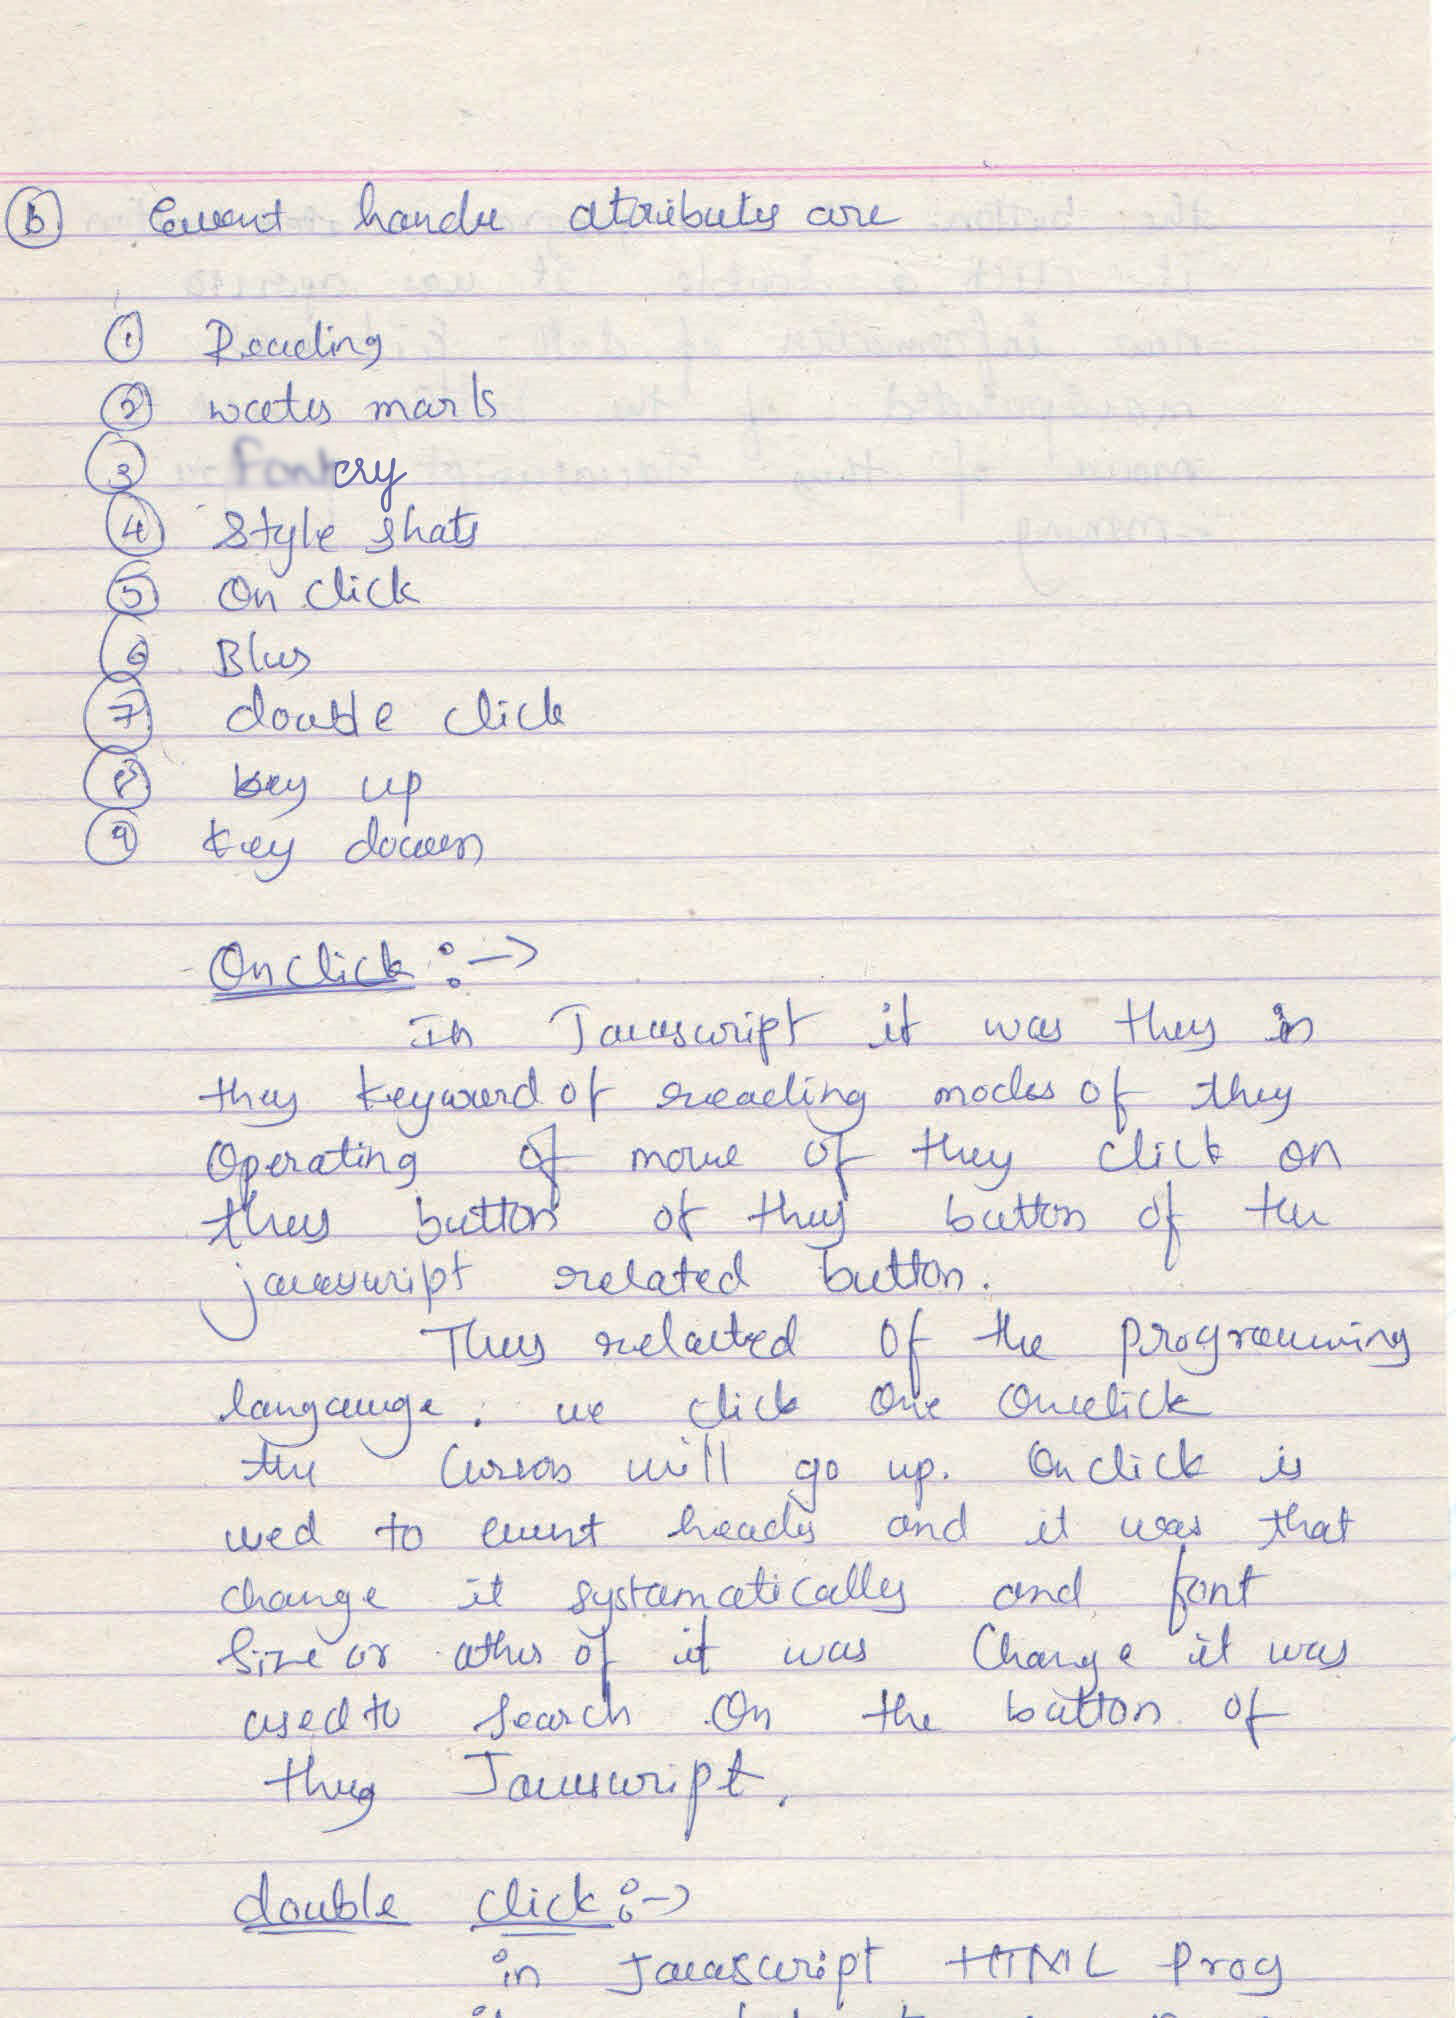 b Event handle atributes are
1 Reading
2 wates marks
3 cry
4 Style shats
5 On click
6 Blus
7 double click
8 key up
9 key down
Onclick :->
In Javascript it was they in
they keyword of reading modes of they
Operating of move of they click on
they button of they button of the
javascript related button.
Thus related of the programming
langauge. we click One Onclick
the Cursor will go up. Onclick is
used to event heads and it was that
change it systamatically and font
Size or other of it was Change it was
used to Search On the button of
they Javascript.
double click :->
in Javascript HTML Prog